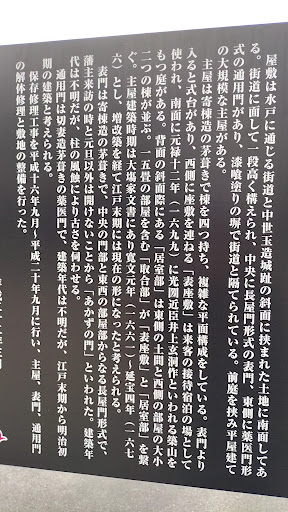 屋敷は水戸に通じる街道と中世玉造城跡の斜面に挟まれた土地に南面してあ
る。街道に面して一段高く構えられ、中央に長屋門形式の表門、東側に薬医門形
式の通用門があり、漆喰塗りの塀で街道と隔てられている。前庭を挟み平屋建て
の大規模な主屋がある。
主屋は寄棟造の茅葺きで棟を四つ持ち、複雑な平面構成をしている。表門より
入ると式台があり、西側に座敷を連ねる「表座敷」は来客の接待宿泊の場として
使われ、南面に元禄十二年（一六九九）に光圀近臣井上玄洞作といわれる築山を
もつ庭がある。背面の斜面際にある「居室部」は東側の土間と西側の部屋の大小
二つの棟が並ぶ。一五畳の部屋を含む「取合部」が「表座敷」と「居室部」を繋
ぐ。主屋建築時期は大場家文書にあり寛文元年（一六六一）～延宝四年（一六七
六）とし、増改築を経て江戸末期には現在の形になったと考えられる。
表門は寄棟造の茅葺きで、中央の門部と東西の部屋部からなる長屋門形式で、
藩主来訪の時と元旦以外は開けないことから「あかずの門」といわれた。建築年
代は不明だが、柱の風蝕により古さを伺わせる。
通用門は切妻造茅葺きの薬医門で、建築年代は不明だが、江戸末期から明治初
期の建築と考えられる。
保存修理工事を平成十六年九月～平成二十年九月に行い、主屋、表門、通用門
の解体修理と敷地の整備を行った。